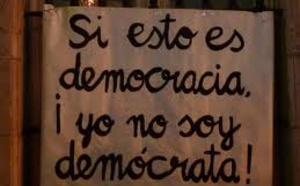 Si esto es
democracia,
¡ yo no soy
demócrata!